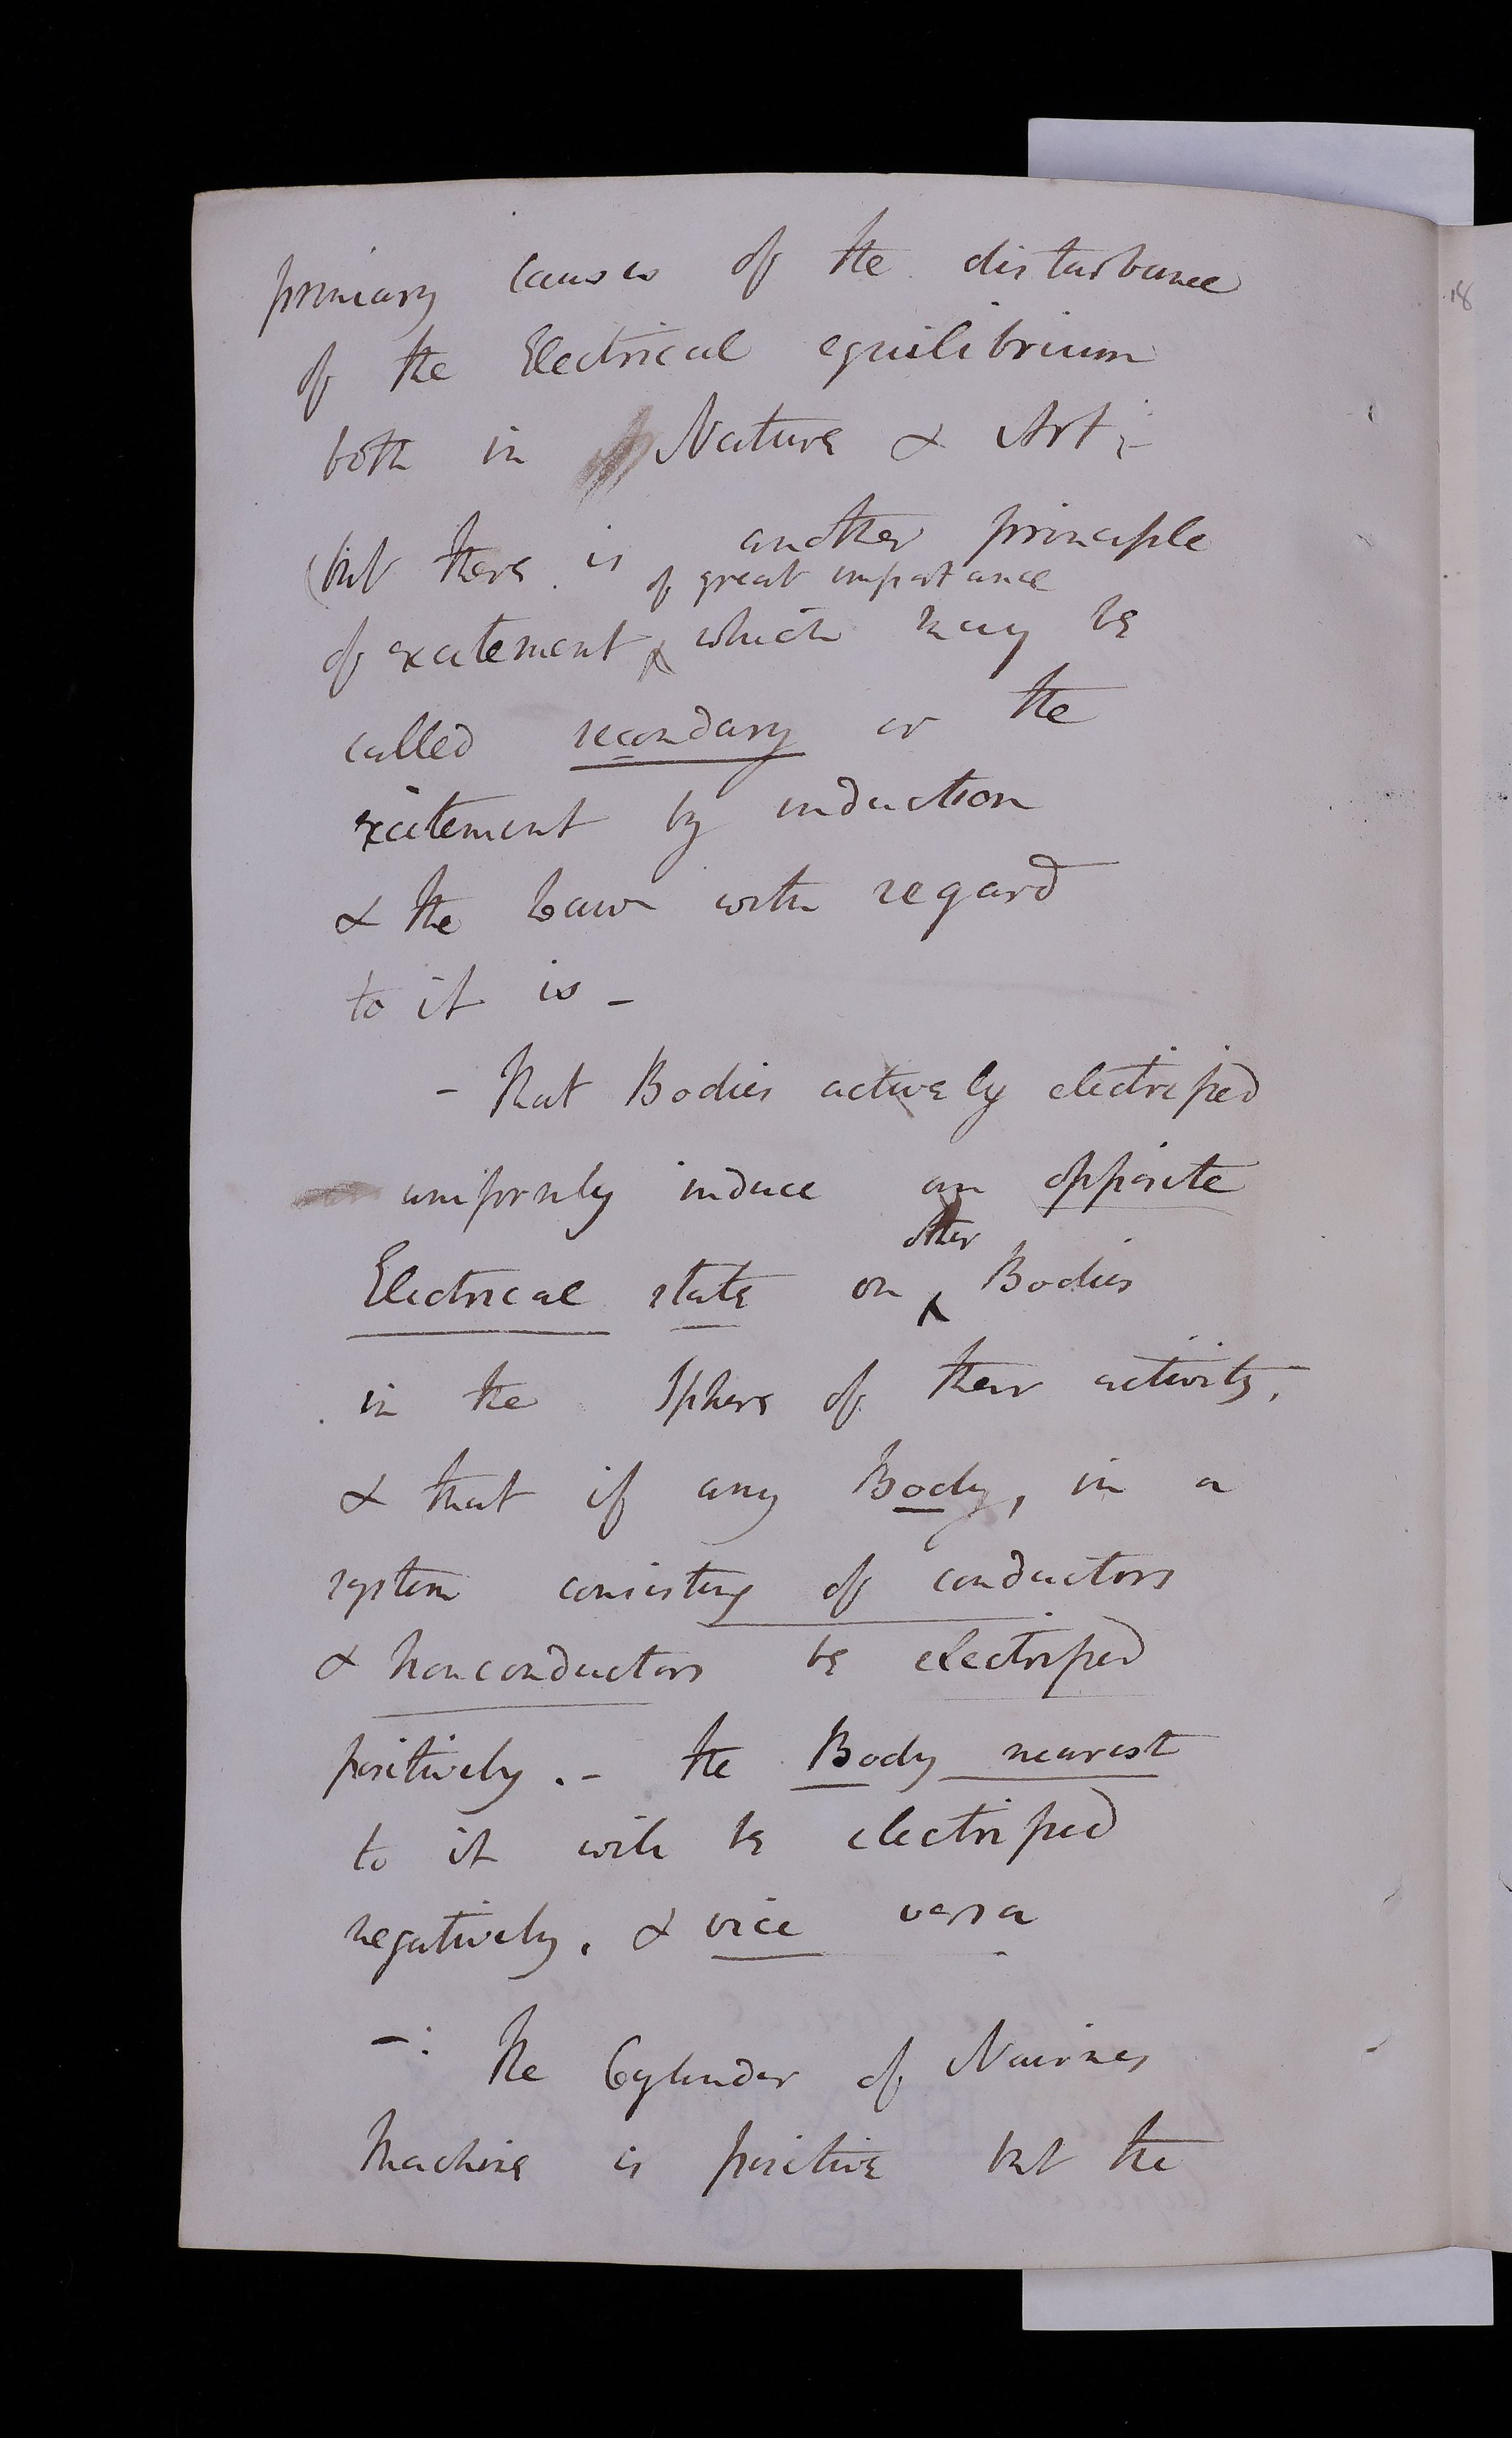 primary causes of the disturbance
of the Electrical equilibrium
both in Nature & Art;-
(but there is another principle
of great importance
of excitement which may be
called secondary or the
excitement by induction
& the Law with regard
to it is -
- That Bodies actively electrified
uniformly induce an opposite
other
Electrical state on Bodies
in the sphere of their activity,
& that if any Body, in a
system consisting of conductors
& nonconductors be electrified
positively. - the Body nearest
to it will be electrified
negatively. & vice versa
-: The Cylinder of Nairnes
Machine is positive but the
18